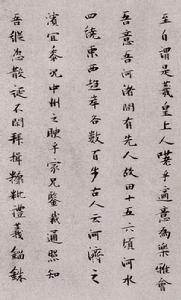 至自謂是羲皇上人嗟乎適意為樂雅會
吾意吾河渚間有先人故田十五六頃河水
四繞東西趍岸各數百步古人云河濟之
濱宜黍況中州之腴乎家兄鑒裁通照知
吾縱恣散誕不閑拜揖糠粃禮義錙銖